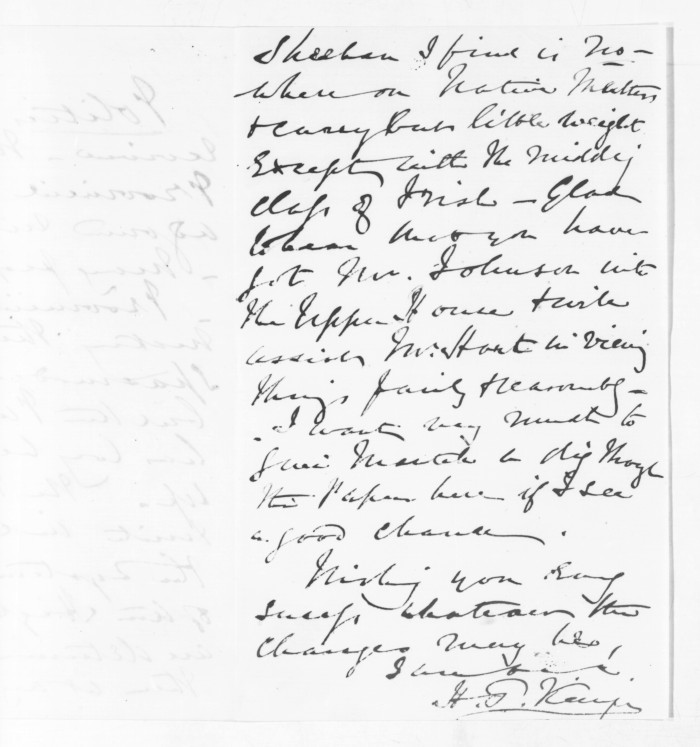 Sheehan I find is no-
where on Native Matters
& carry but little weight
Except with the middg
class of Irish — Glad
to hear that you have
got Mr. Johnson into
the Upper House & will
assist Mr. Hart in viewing
things fairly & reasonably —
I want very much to
give a dig through
the Papers here if I see
a good chance.
Wishing you every
success whatever the
changes may be,
I am
H. T. Kemp